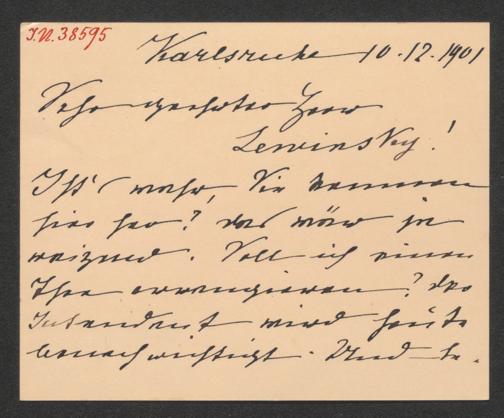 J.N. 38595
Karlsruhe 10.12.1901
Sehr geehrter Herr
Lewinsky!
Ist's wahr, Sie kommen
hier her? das wär ja
reizend. Soll ich einen
Thee arrangieren? der
Intendant wird heute
benachrichtigt. Und